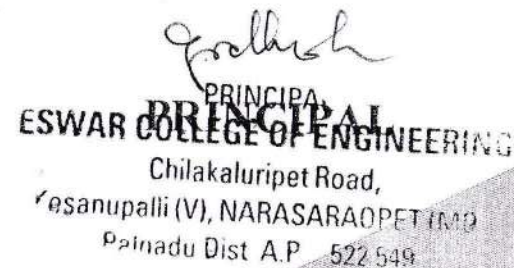 PRINCIPAL
PRINCIPAL
ESWAR COLLEGE OF ENGINEERING
Chilakaluripet Road,
Yesanupalli (V), NARASARAOPET (MD)
Palnadu Dist A.P 522 549